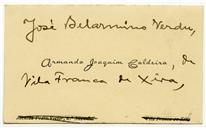 José Belarmino Verdu,
Armando Joaquim Caldeira, de
Vila Franca de Xira,